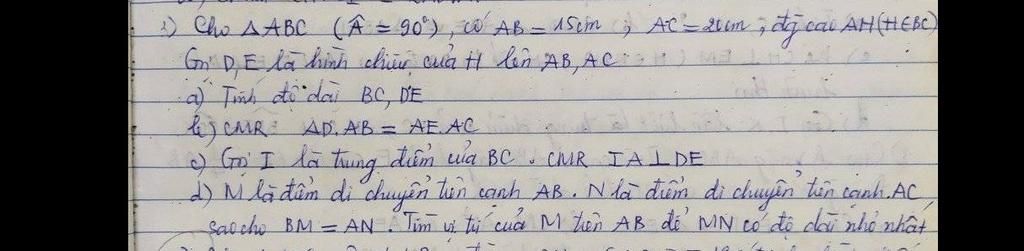 1) Cho △ABC (Â = 90°), có AB = 15cm ; AC = 20cm , đg cao AH (H∈BC)
Gọi D, E là hình chiếu của H lên AB, AC
a) Tính độ dài BC, DE
b) CMR AD. AB = AE. AC
c) Gọi I là trung điểm của BC. CMR IA ⊥ DE
d) M là điểm di chuyển trên cạnh AB. N là điểm di chuyển trên cạnh AC
sao cho BM = AN. Tìm vị trí của M trên AB để MN có độ dài nhỏ nhất